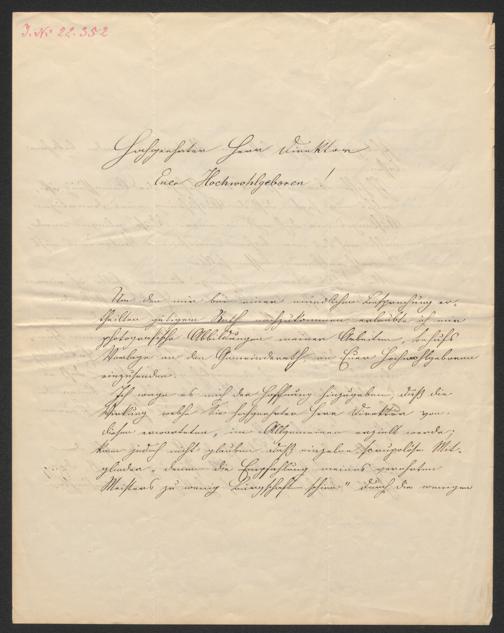 J. No 22.352
Hochgeehrter Herr Direktor
Euer Hochwohlgeboren!
Um den mir bei einer mündlichen Besprechung er-
theilten gütigen Rath nachzukommen erlaubte ich mir
photografische Abbildungen meiner Arbeiten, behufs
Vorlage an den Gemeinderath, an Euer Hochwohlgeboren
einzusenden.
Ich wage es mich der Hoffnung hinzugeben, daß die
Wirkung welche Sie hochgeehrter Herr Direktor von
diesen erwarteten, im Allgemeinen erzielt werde;
kann jedoch nicht glauben daß einzelne skrupolöse Mit-
glieder, denen die Empfehlung meines verehrten
Meisters zu wenig Bürgschaft schien" durch die wenigen